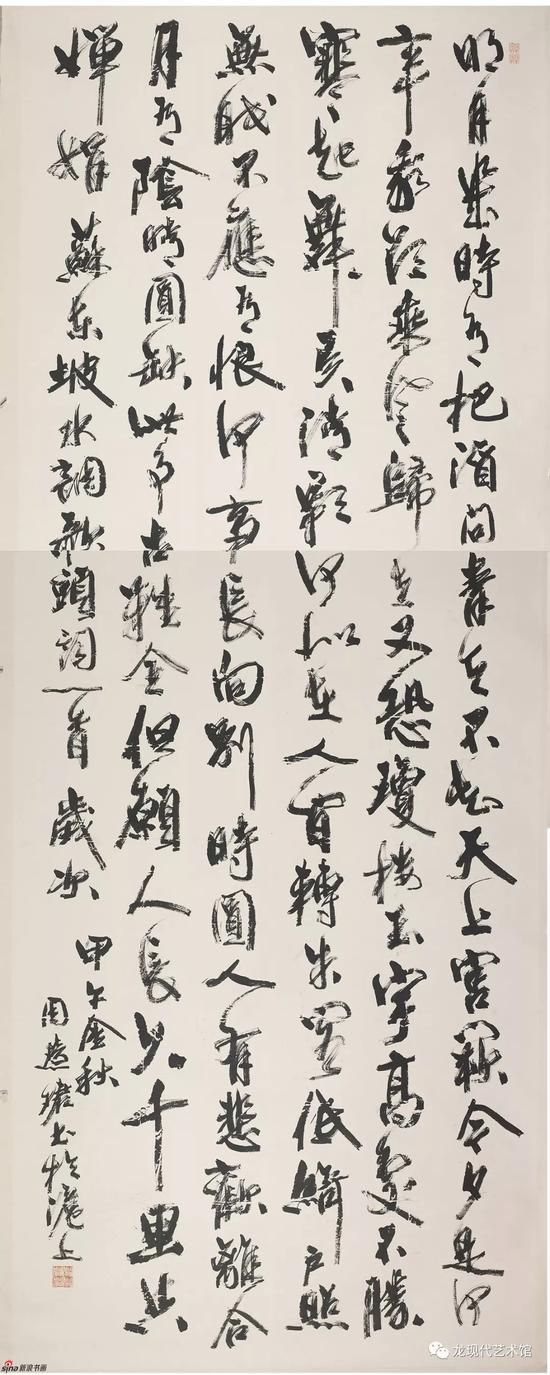 明月幾時有把酒問青天不知天上宫闕今夕是何
年我欲乘風歸去又恐瓊樓玉宇高處不勝
寒起舞弄清影何似在人間轉朱閣低綺户照
無眠不應有恨何事長向别時圓人有悲歡離合
月有陰晴圓缺此事古難全但願人長久千里共
嬋娟蘇東坡水調歌頭詞一首歲次
甲午金秋
周慧珺書於滬上
sina新浪书画
龙现代艺术馆